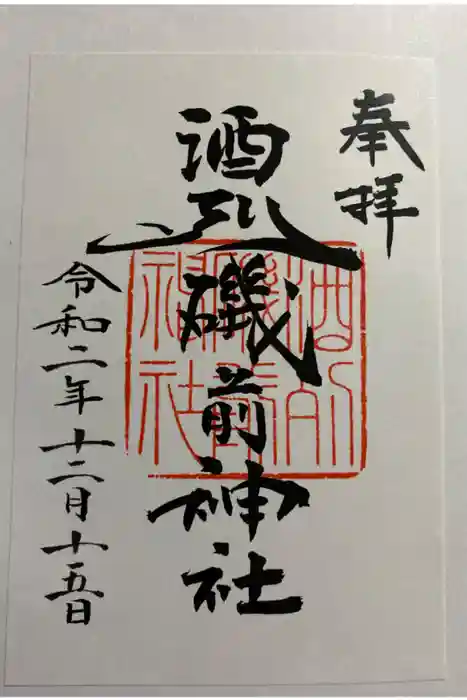 奉拝
酒列磯前神社
令和二年十二月十五日
酒列磯前神社